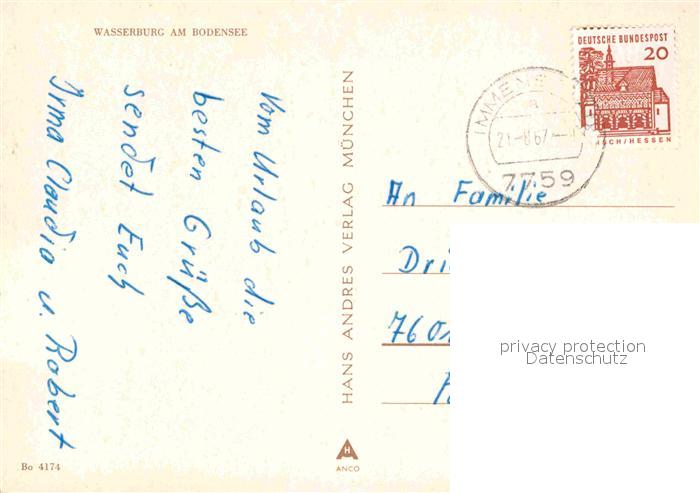 WASSERBURG AM BODENSEE
Vom Urlaub die
besten Grüße
sendet Euch
Irma Claudia u. Robert
Bo 4174
HANS ANDRES VERLAG MÜNCHEN
ANCO
DEUTSCHE BUNDESPOST
20
7759
An Familie
privacy protection
Datenschutz